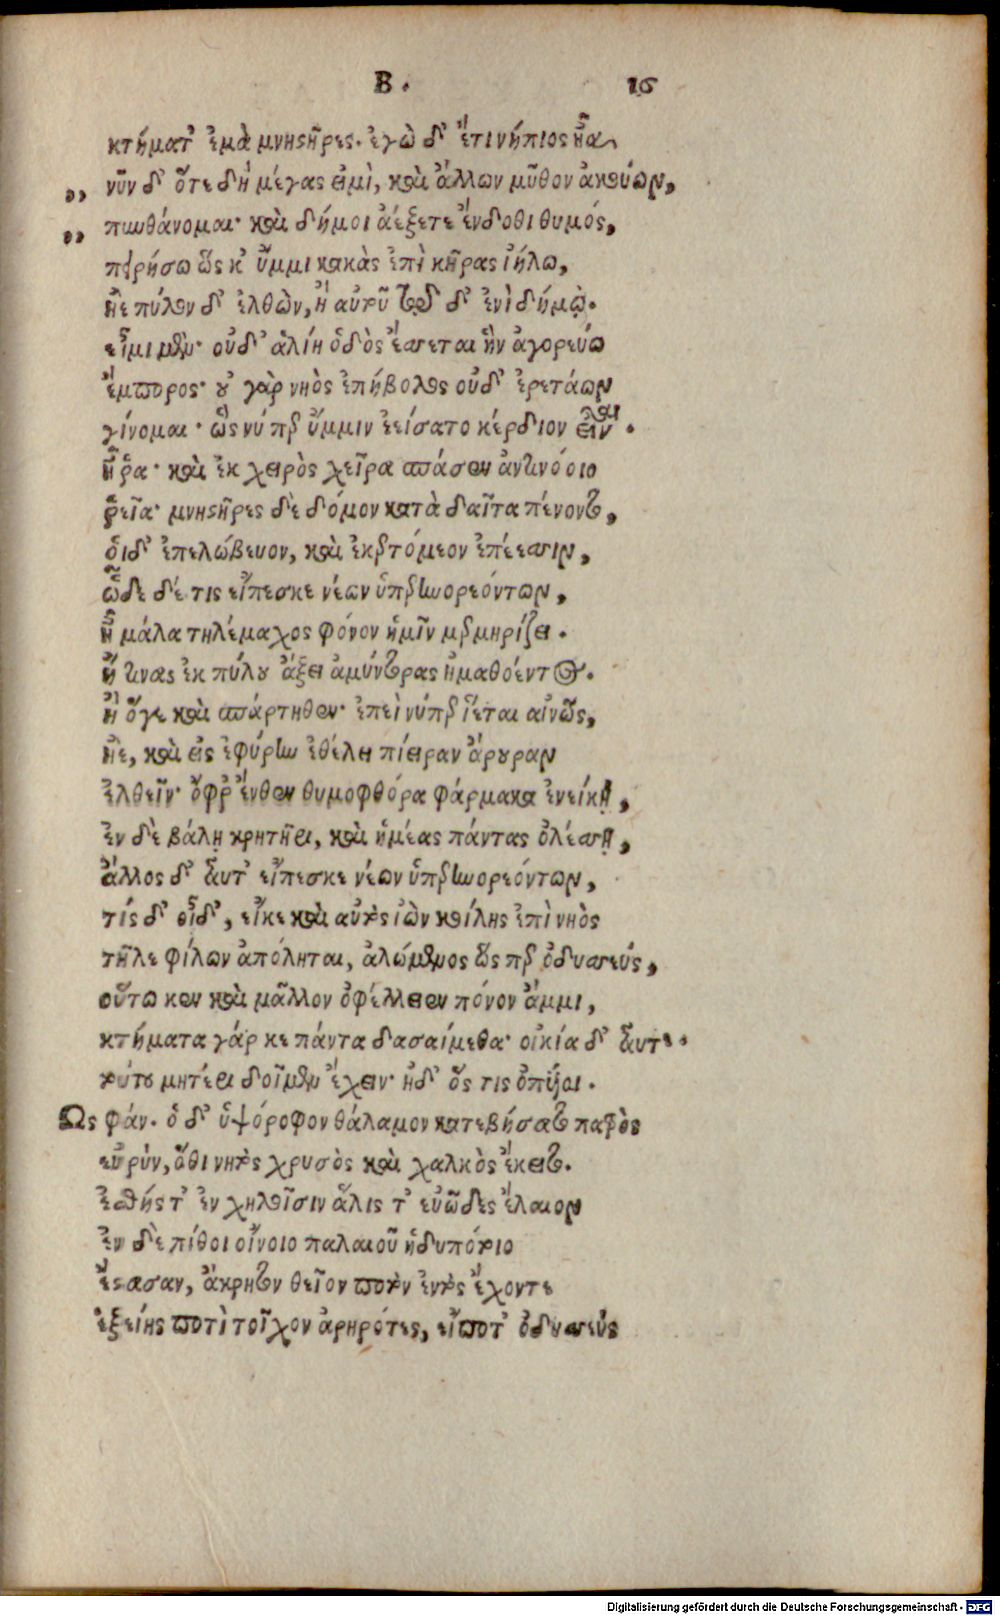 Β. 16
κτήματ' ἐμὰ μνηστῆρες. ἐγὼ δ' ἔτι νήπιος ἦα,
νῦν δ' ὅτε δὴ μέγας εἰμὶ, καὶ ἄλλων μῦθον ἀκούων,
πυνθάνομαι· καὶ δή μοι ἀέξεται ἔνδοθι θυμός,
πειρήσω ὥς κ' ὔμμι κακὰς ἐπὶ κῆρας ἰήλω,
ἠὲ πύλον δ' ἐλθὼν, ἢ αὐτοῦ τῷδ' ἐνὶ δήμῳ.
εἶμι μὲν· οὐδ' ἁλίη ὁδὸς ἔσσεται ἣν ἀγορεύω
ἔμπορος· οὐ γὰρ νηὸς ἐπήβολος οὐδ' ἐρετάων
γίνομαι· ὥς νύ περ ὔμμιν ἐείσατο κέρδιον εἶναι.
ἦ ῥα· καὶ ἐκ χειρὸς χεῖρα σπάσεν ἀντινόοιο
ῥεῖα· μνηστῆρες δὲ δόμον κατὰ δαῖτα πένοντο,
ὁιδ' ἐπελώβευον, καὶ ἐκερτόμεον ἐπέεσσιν,
ὧδε δέ τις εἴπεσκε νέων ὑπερηνορεόντων,
ἦ μάλα τηλέμαχος φόνον ἡμῖν μερμηρίζει.
ἤ τινας ἐκ πύλου ἄξει ἀμύντορας ἠμαθόεντος.
ἢ ὅγε καὶ σπάρτηθεν· ἐπεὶ νύ περ ἵεται αἰνῶς,
ἠὲ, καὶ εἰς ἐφύρην ἐθέλει πίειραν ἄρουραν
ἐλθεῖν· ὄφρ' ἔνθεν θυμοφθόρα φάρμακα ἐνείκῃ,
ἐν δὲ βάλῃ κρητῆρι, καὶ ἡμέας πάντας ὀλέσσῃ,
ἄλλος δ' αὖτ' εἴπεσκε νέων ὑπερηνορεόντων,
τίς δ' οἶδ', εἴκε καὶ αὐτὸς ἰὼν κοίλης ἐπὶ νηὸς
τῆλε φίλων ἀπόληται, ἀλώμενος ὥς περ ὀδυσσεύς,
οὕτω κεν καὶ μᾶλλον ὀφέλλειεν πόνον ἄμμι,
κτήματα γάρ κε πάντα δασαίμεθα· οἰκία δ' αὖτε.
τούτου μητέρι δοῖμεν ἔχειν· ἠδ' ὅς τις ὀπυίοι.
Ὣς φάν. ὁ δ' ὑψόροφον θάλαμον κατεβήσατο πατρὸς
εὐρὺν, ὅθι νητὸς χρυσὸς καὶ χαλκὸς ἔκειτο.
ἐσθής τ' ἐν χηλοῖσιν ἅλις τ' εὐῶδες ἔλαιον
ἐν δὲ πίθοι οἴνοιο παλαιοῦ ἡδυπότοιο
ἕστασαν, ἄκρητον θεῖον ποτὸν ἐντὸς ἔχοντε
ἑξείης ποτὶ τοῖχον ἀρηρότες, εἴποτ' ὀδυσσεὺς
Digitalisierung gefördert durch die Deutsche Forschungsgemeinschaft - DFG